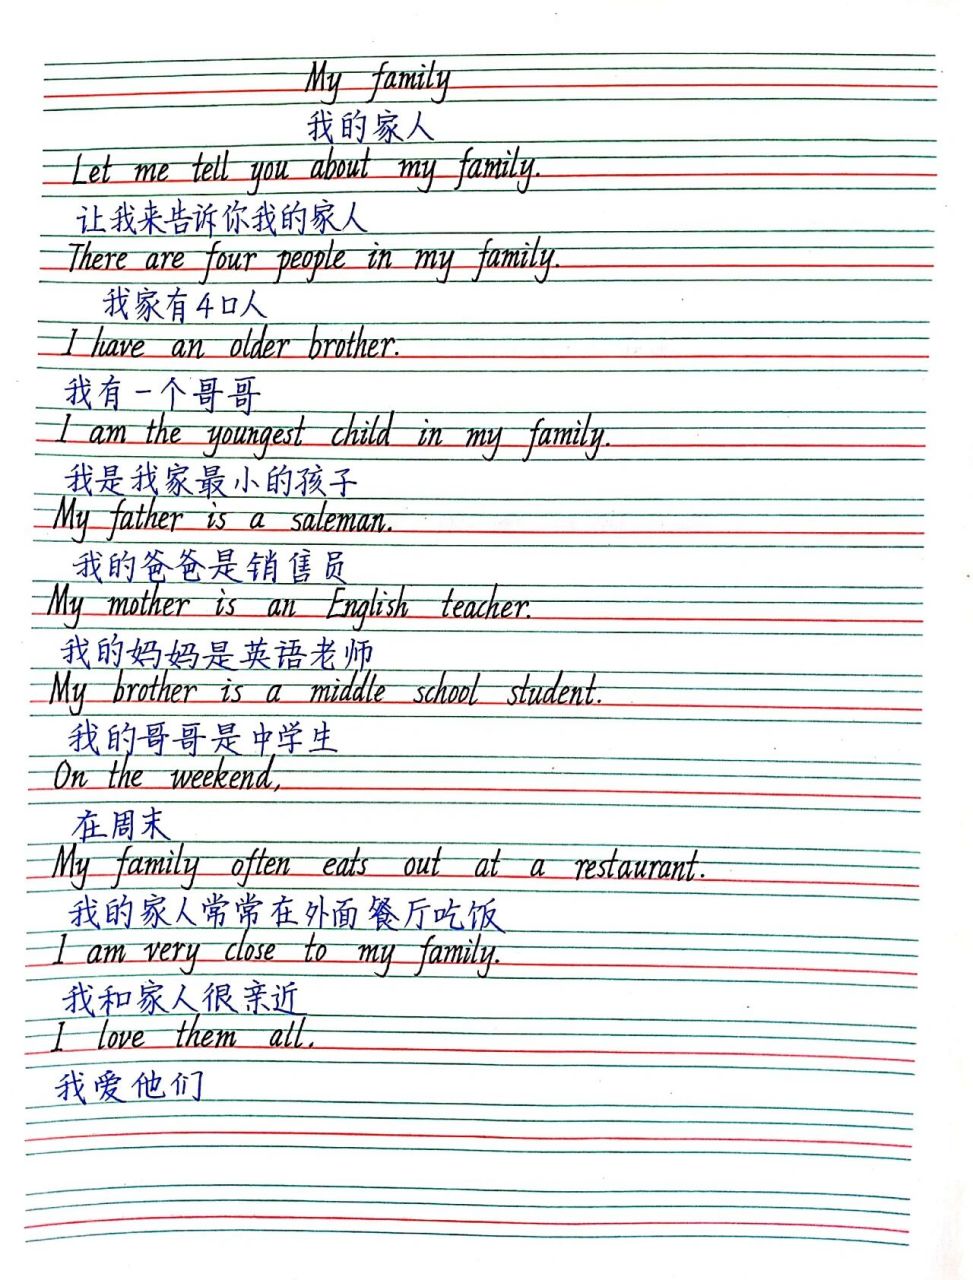 My family
我的家人
Let me tell you about my family.
让我来告诉你我的家人
There are four people in my family.
我家有4口人
I have an older brother.
我有一个哥哥
I am the youngest child in my family.
我是我家最小的孩子
My father is a saleman.
我的爸爸是销售员
My mother is an English teacher.
我的妈妈是英语老师
My brother is a middle school student.
我的哥哥是中学生
On the weekend,
在周末
My family often eats out at a restaurant.
我的家人常常在外面餐厅吃饭
I am very close to my family.
我和家人很亲近
I love them all.
我爱他们